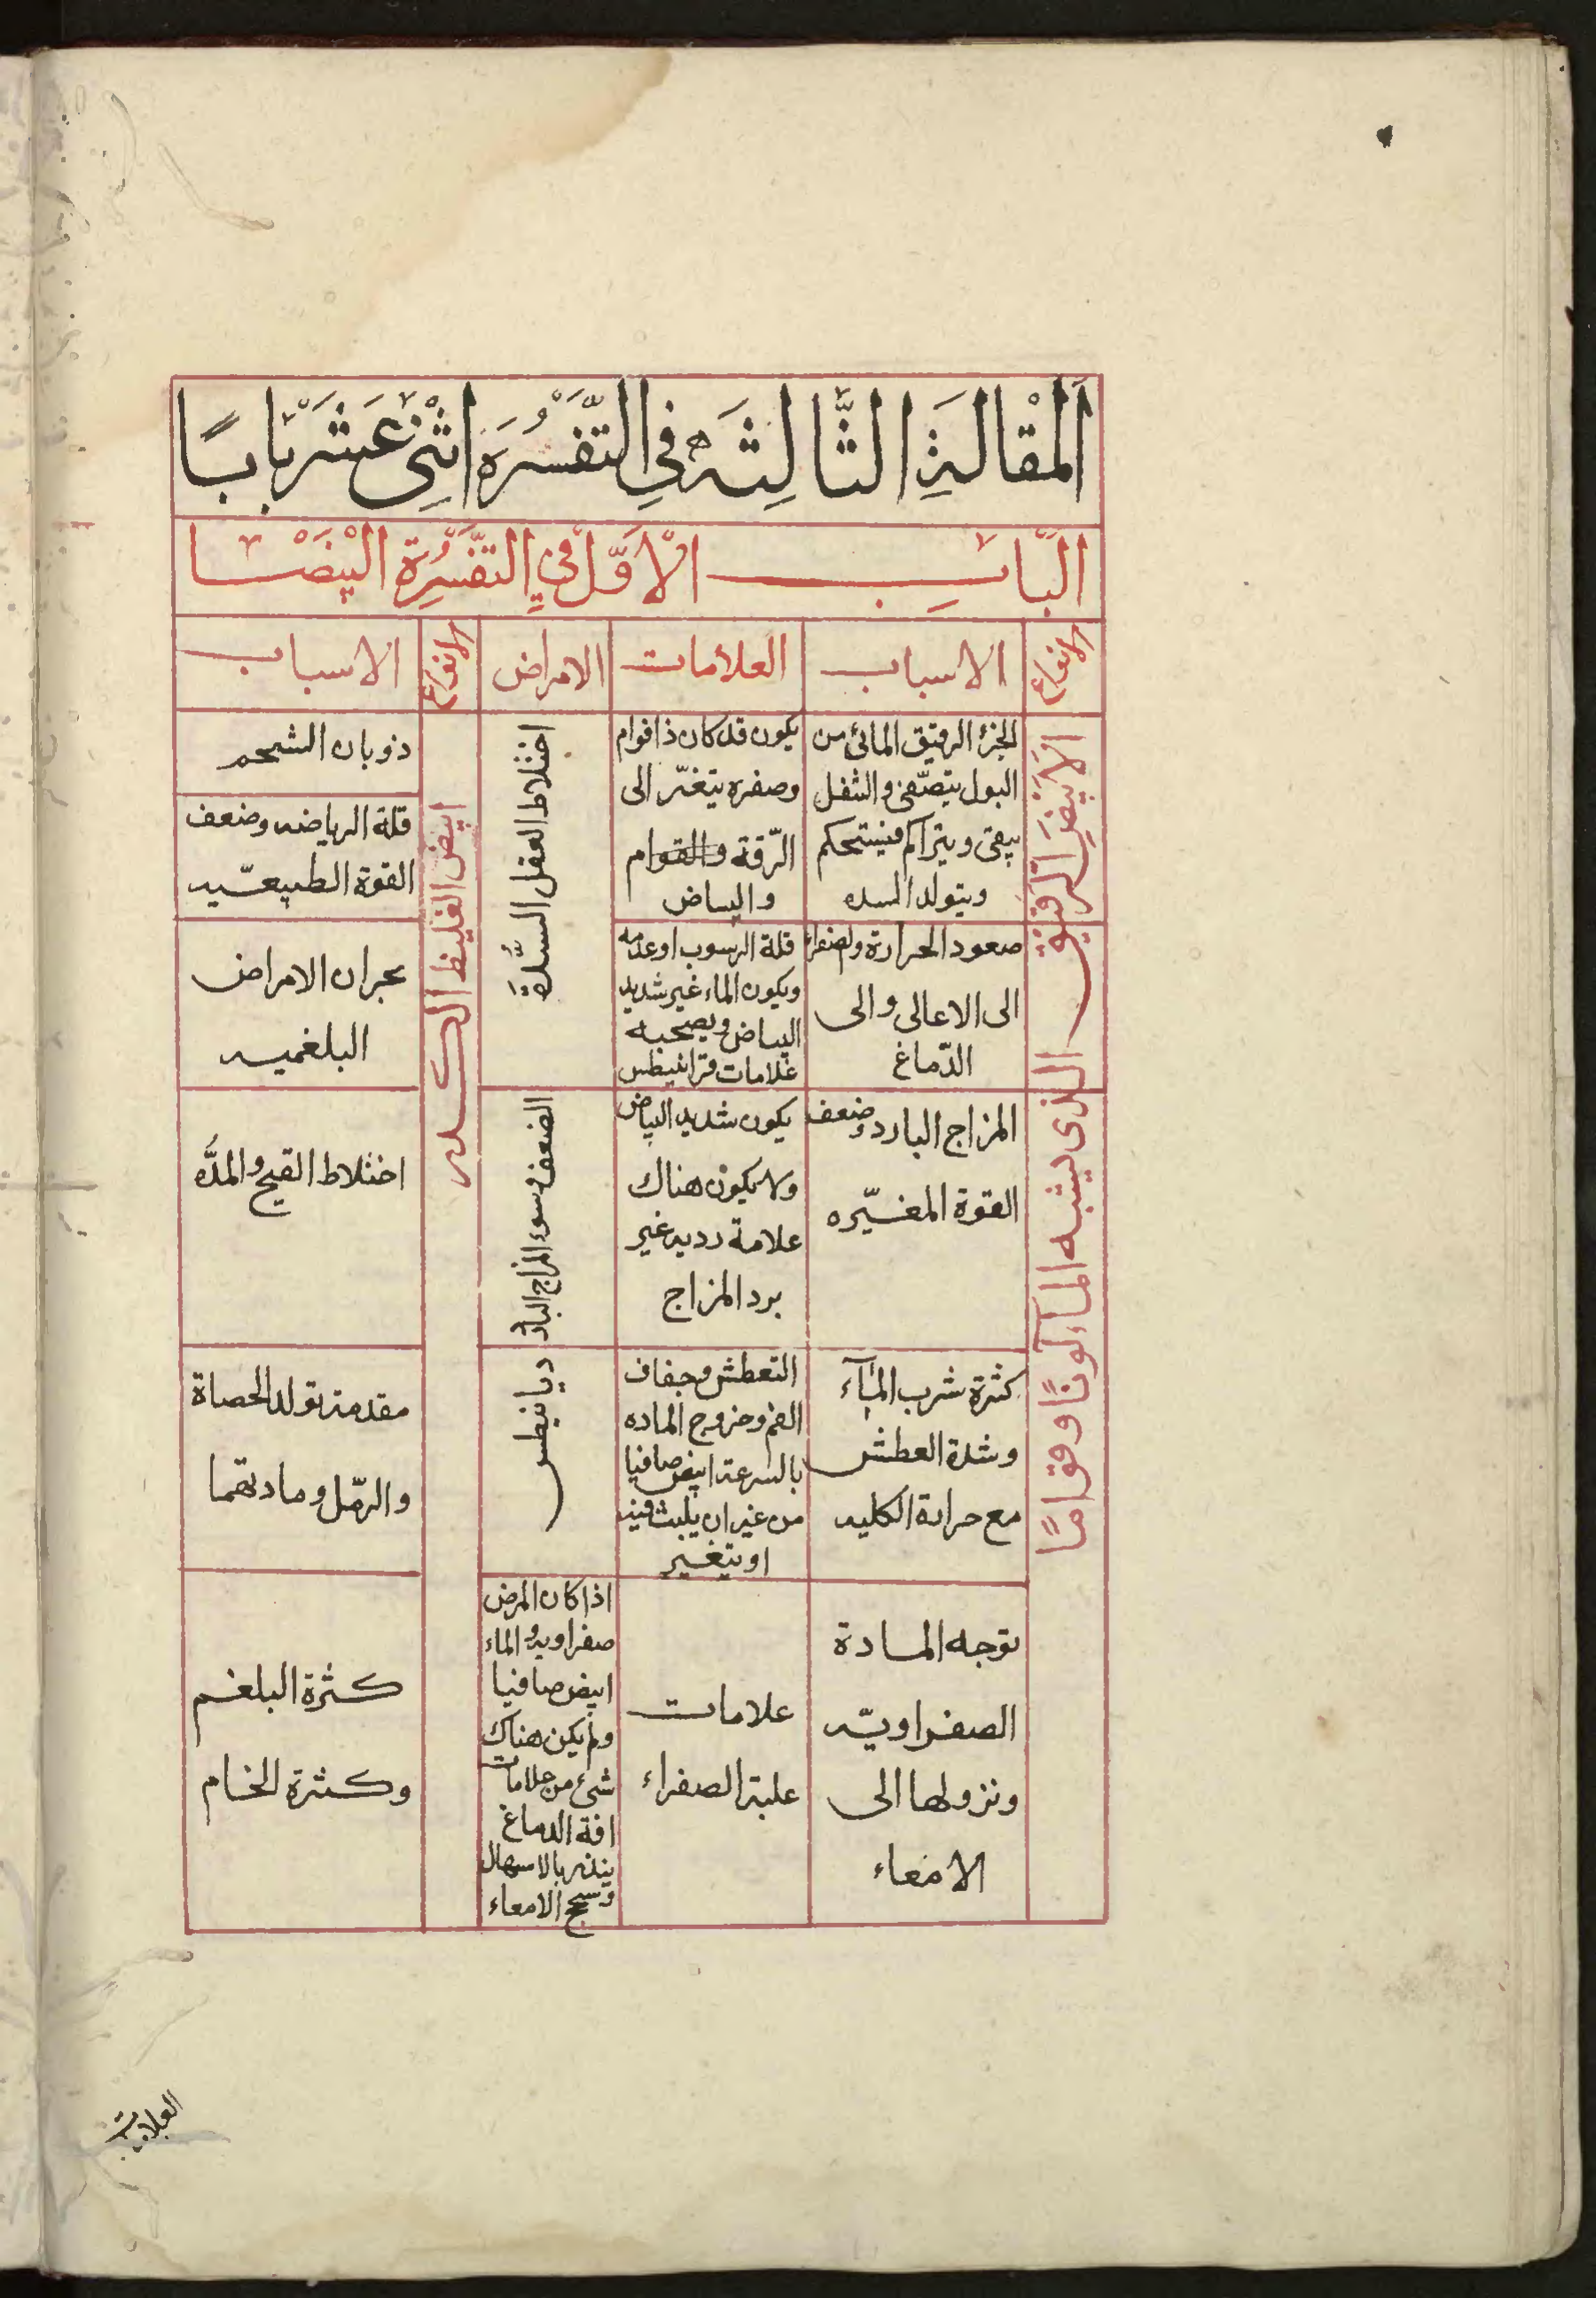 اَلْمَقالَةِ الثَّالِثَه فِي التَّفْسُرَه اثْنى عَشْرَ بَابًا
البَابِ الاَوَّل فيِ التَّفْسُرِة البيْضا
الانواع
الاسباب
العلامات
الامراض
الانواع
الاسباب
الاَبيَضِ الرّقيق الذى يشبه المآء لونًا وقوامًا
الجزء الرقيق المائى من
البول يتصفى والثفل
يبقى ويتراكم فيستحكم
ويتولد السده
يكون قد كان ذا قوام
وصفره يتغيّر الى
الرّقة والقوام
والبياض
اختلاط العقل السُّدَّة
صعود الحرارة والصفراء
الى الاعالى والى
الدّماغ
قلة الرسوب او عدمه
ويكون الماء غير شديد
البياض ويصحبه
علامات قرانيطس
المزاج البارد وضعف
القوة المغيّره
يكون شديد البياض
ولا يكون هناك
علامة رديه غير
برد المزاج
الضعف وسوء المزاج البارد
كثرة شرب المآء
وشدة العطش
مع حرارة الكليه
التعطش وجفاف
الفم وخروج الماده
بالسرعة ابيض صافيا
من غير ان يلبث فيه
او يتغير
ديانيطس
توجه المادة
الصفراويّه
ونزولها الى
الامعاء
علامات
غلبة الصفراء
اذا كان المرض
صفراويه والماء
ابيض صافيا
ولم يكن هناك
شئ من علامات
افة الدماغ
ينذر بالاسهال
وسحج الامعاء
ابيض الغليظ الكدر
ذوبان الشحم
قلة الرياضه وضعف
القوة الطبيعّيه
بحران الامراض
البلغميه
اختلاط القيح والمدَّه
مقدمة تولد الحصاة
والرّمل ومادتهما
كثرة البلغم
وكثرة الخام
العلامات